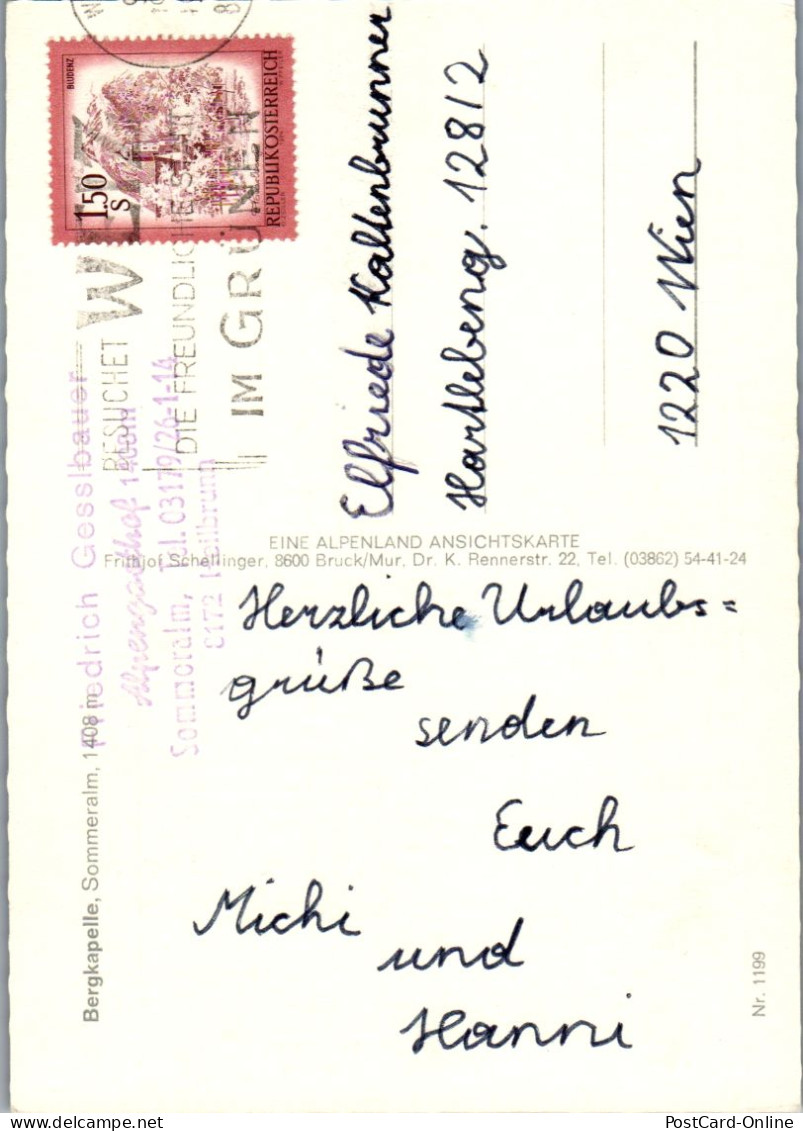 BLUDENZ
1.50
S
REPUBLIK ÖSTERREICH
BESUCHET
WEIZ
DIE FREUNDLICHE STADT
IM GRÜNEN
Friedrich Gesslbauer
Alpengasthof 1400m
Sommeralm, Tel. 03179/26-1-14
8172 Heilbrunn
Elfriede Kaltenbrunner
Hartlebeng. 128/2
1220 Wien
EINE ALPENLAND ANSICHTSKARTE
Frithjof Schellinger, 8600 Bruck/Mur, Dr. K. Rennerstr. 22, Tel. (03862) 54-41-24
Herzliche Urlaubs=
grüße
senden
Euch
Michi
und
Hanni
Bergkapelle, Sommeralm, 1408 m
Nr. 1199
PostCard-Online